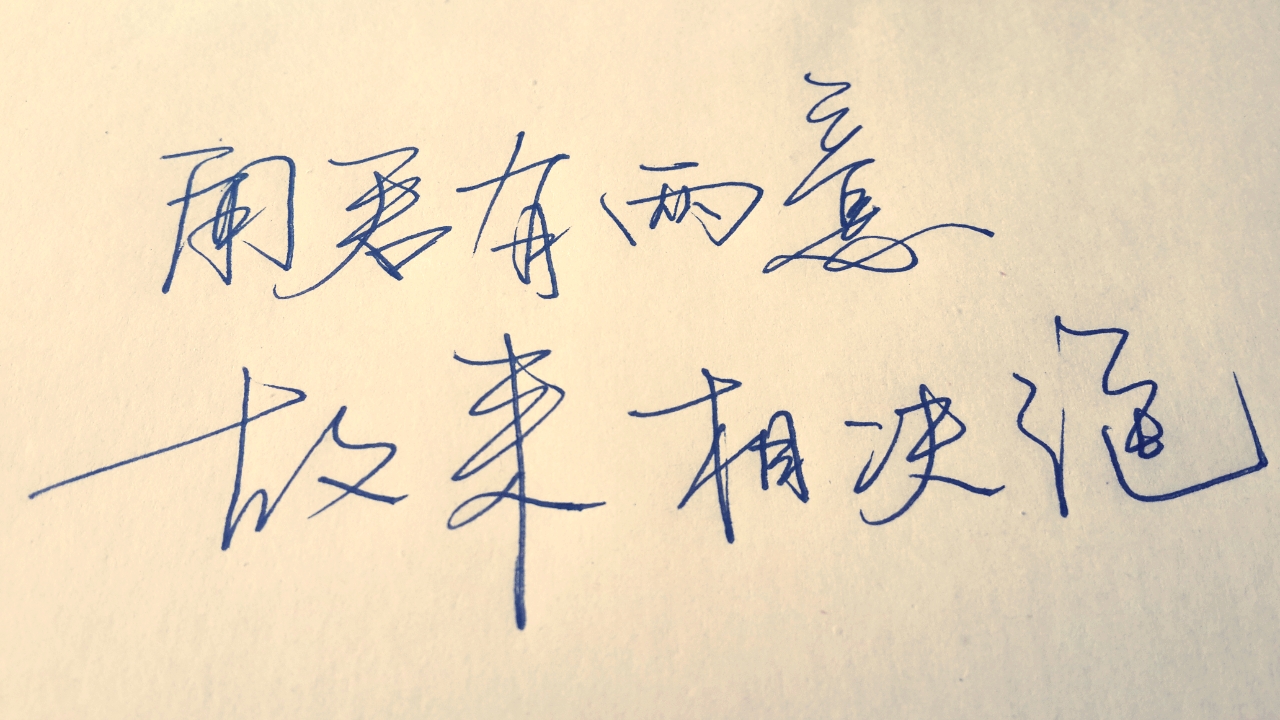 闻君有两意
故来相决绝